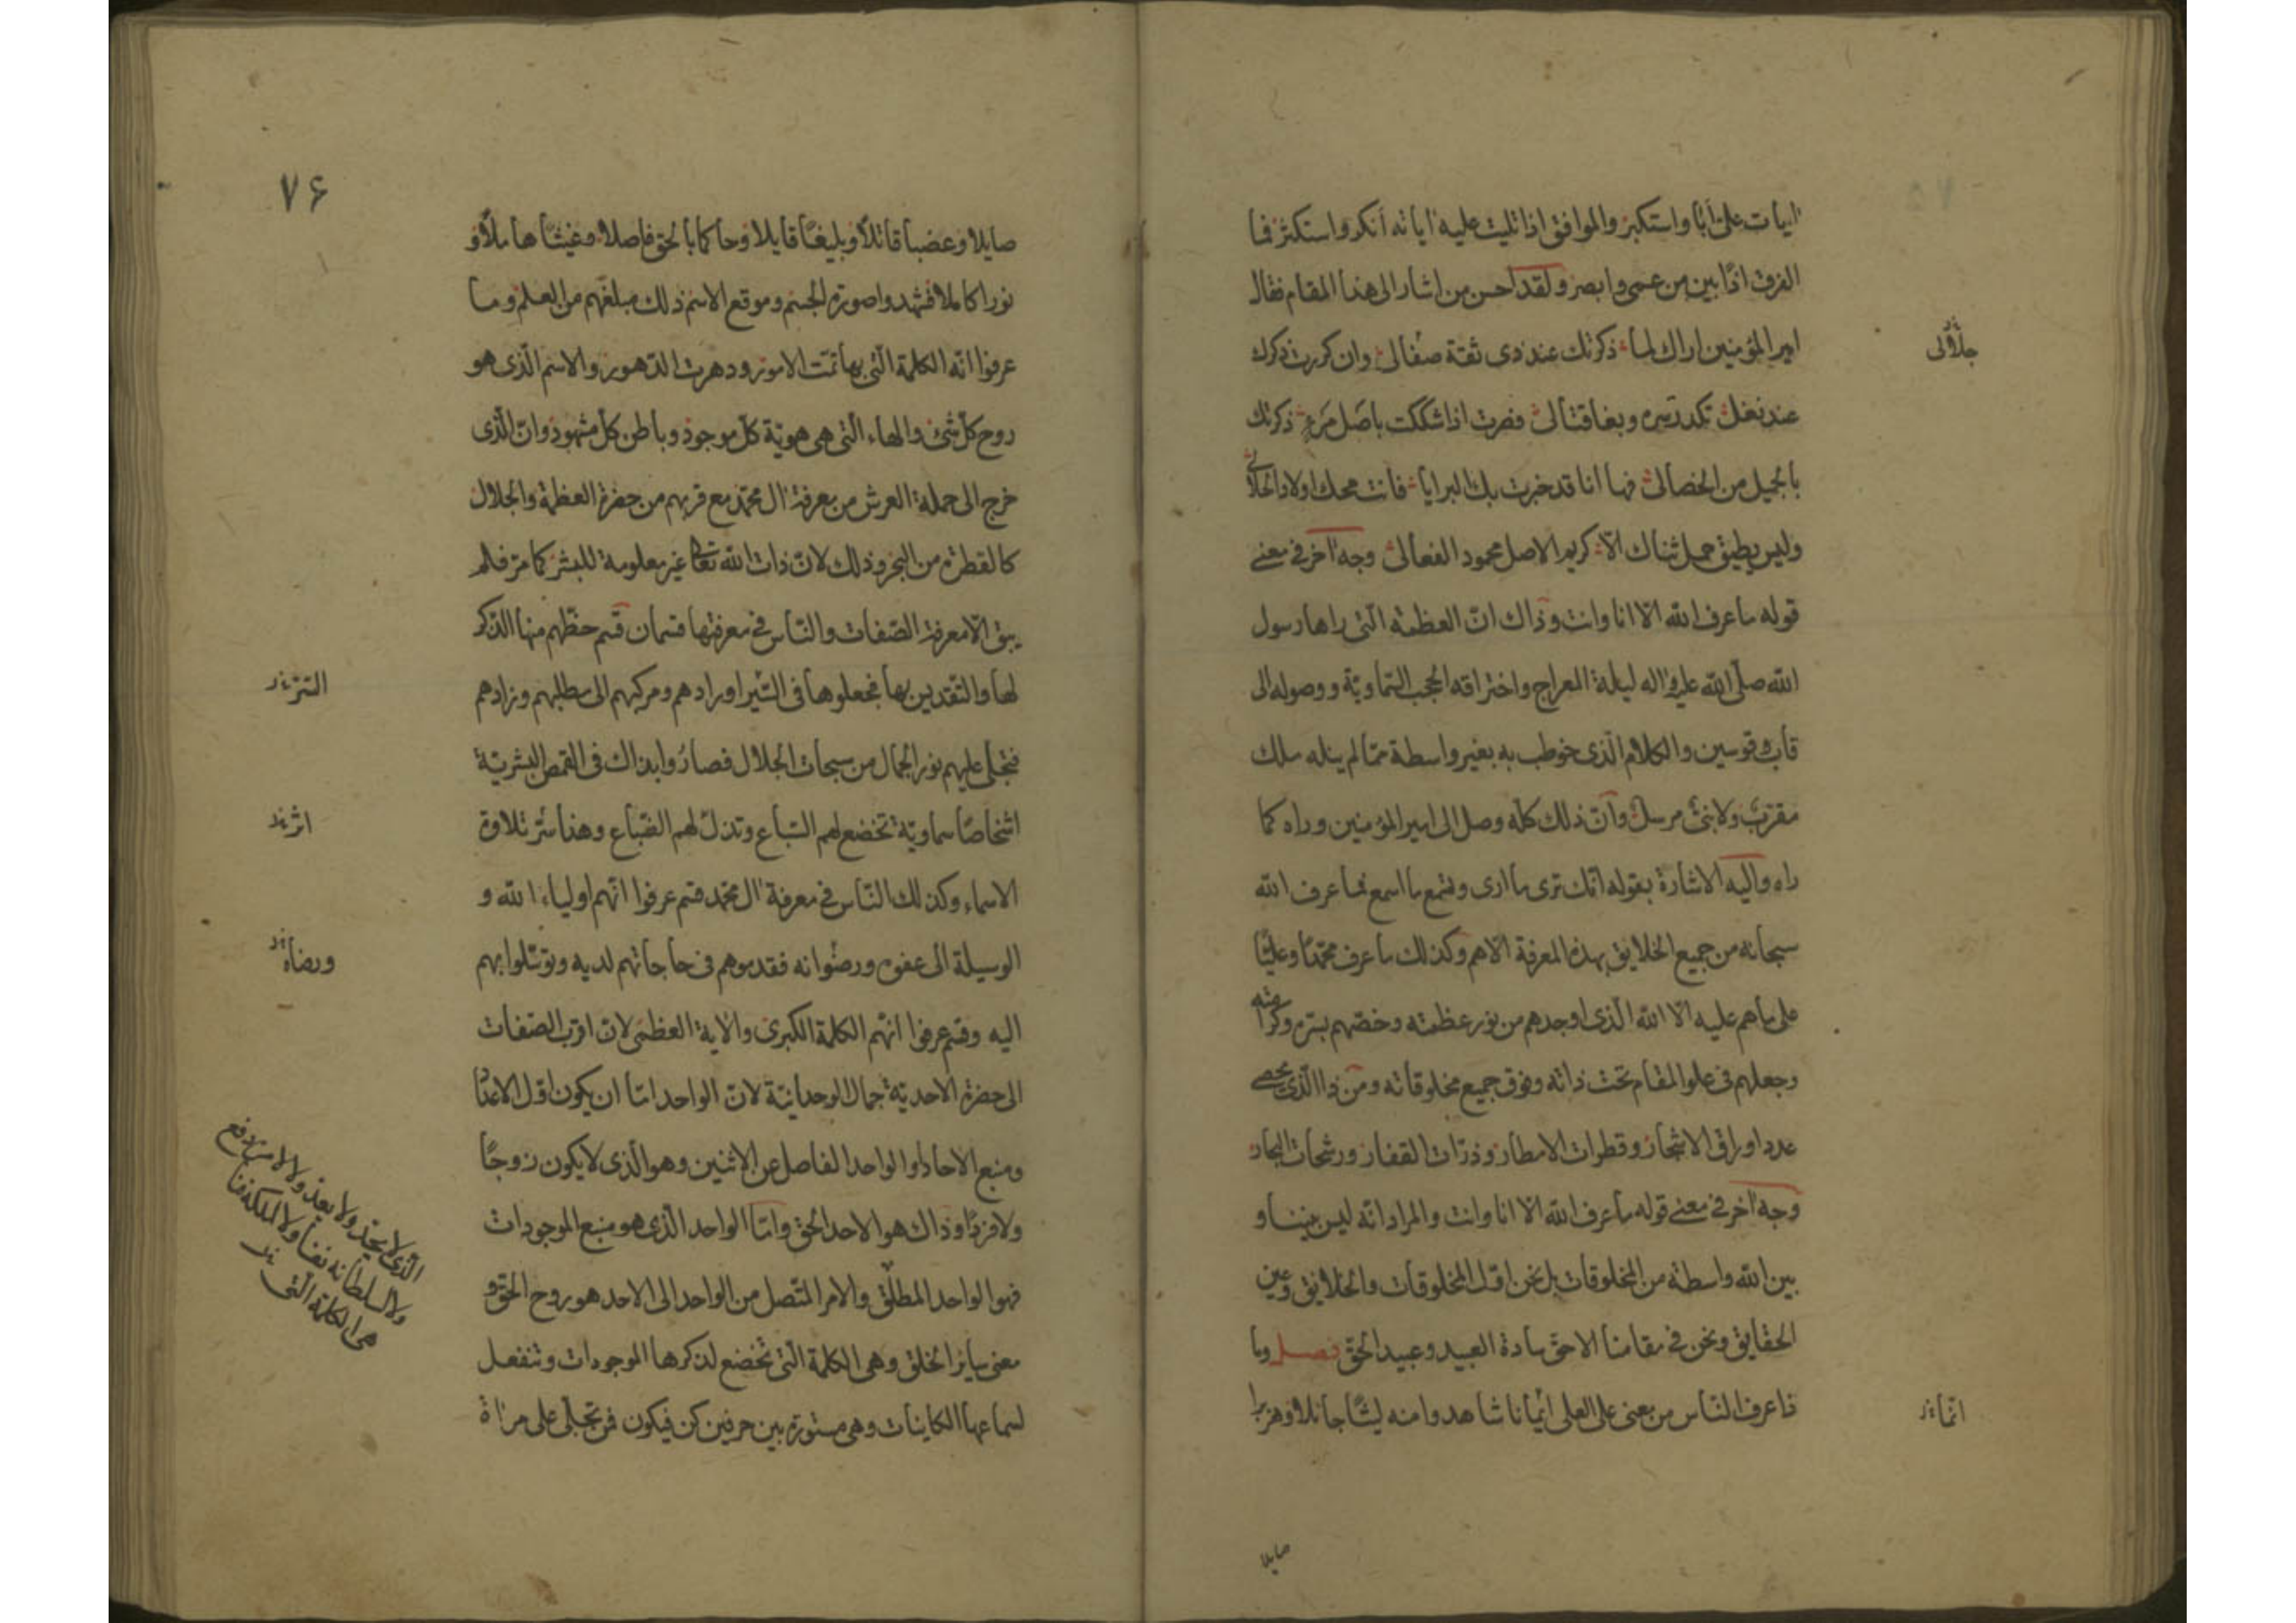 ايات علىّ أبا واستكبر والموافق اذا تليت عليه اياته أنكر واستكثر فما
الفرق اذًا بين من عمى وابصر ولقد احسن من اشار الى هذا المقام فقال
امير المؤمنين اراك لما ذكرتك عند ذى ثقة صفالى وان كررت ذكرك
عند نغل تكدر سره وبغا قتالى فصرت اذا شككت باصل مرء ذكرتك
بالجميل من الخصال فها انا قد خبرت بك البرايا فانت محك اولاد الحلال
وليس يطيق حمل ثناك الا كريم الاصل محمود الفعال وجه اخر فى معنى
قوله ما عرف الله الا انا وانت وذاك ان العظمة التى راها رسول
الله صلّى الله عليه واله ليلة المعراج واختراقه الحجب السّماويّة ووصوله الى
قاب قوسين والكلام الّذى خوطب به بغير واسطة ممّا لم ينله ملك
مقرّب ولا نبىّ مرسل وانّ ذلك كلّه وصل الى امير المؤمنين وراه كما
راه واليه الاشارة بقوله انّك ترى ما ارى وتسمع ما اسمع فما عرف الله
سبحانه من جميع الخلايق بهذه المعرفة الا هم وكذلك ما عرف محمّدًا وعليًّا
على ما هم عليه الّا الله الّذى اوجدهم من نور عظمته وخصّهم بسرّه وكرامته
وجعلهم فى علو المقام تحت ذاته وفوق جميع مخلوقاته ومن ذا الّذى يحصى
عدد اوراق الاشجار وقطرات الامطار وذرّات القفار ورشحات البحار
وجه اخر فى معنى قوله ما عرف الله الّا انا وانت والمراد انّه ليس بيننا و
بين الله واسطة من المخلوقات بل نحن اوّل المخلوقات والخلايق وعين
الحقايق ونحن فى مقامنا الاحق سادة العبيد وعبيد الحق فصل وما
ذا عرف النّاس من معنى على العلى انّما شاهدوا منه ليثًا جائلا وهزبرا
جلّالى
انّما
صايلا
٧۶
صايلا وعضبا قاتلًا وبليغًا قايلا وحاكما بالحق فاصلا وغيثًا هاملًا و
نورا كاملا فشهدوا صورة الجسم وموقع الاسم ذلك مبلغهم من العلم وما
عرفوا انّه الكلمة الّتى بها تمّت الامور ودهرت الدّهور والاسم الّذى هو
روح كلّ شئ والهاء الّتى هى هويّة كلّ موجود وباطن كلّ مشهود وانّ الّذى
خرج الى حملة العرش من معرفة ال محمّد مع قربهم من حضرة العظمة والجلال
كالقطرة من البحر وذلك لانّ ذات الله تعالى غير معلومة للبشر كما مرّ فلم
يبق الّا معرفة الصّفات والنّاس فى معرفتها قسمان قسم حظّهم منها الذّكر
لها والتقديس بها فجعلوها فى السّير اورادهم ومركبهم الى مطلبهم وزادهم
فتجلّى عليهم نور الجمال من سبحات الجلال فصاروا بذاك فى القمص البشريّة
اشخاصًا سماويّة تخضع لهم السّباع وتذلّ لهم الضّباع وهذا سرّ تلاوة
الاسماء وكذلك النّاس فى معرفة ال محمّد قسم عرفوا انّهم اولياء الله و
الوسيلة الى عفوه ورضوانه فقدموهم فى حاجاتهم لديه وتوسّلوا بهم
اليه وقسم عرفوا انّهم الكلمة الكبرى والاية العظمى لانّ اقرب الصّفات
الى حضرة الاحديّة جمال الوحدانيّة لانّ الواحد امّا ان يكون اوّل الاعداد
ومنبع الاحاد او الواحد الفاصل عن الاثنين وهو الّذى لا يكون زوجًا
ولا فردًا وذاك هو الاحد الحق وامّا الواحد الّذى هو منبع الموجودات
فهو الواحد المطلق والامر المتّصل من الواحد الى الاحد هو روح الحق و
معنى ساير الخلق وهى الكلمة الّتى تخضع لذكرها الموجودات وتنفعل
لسماعها الكاينات وهى مستورة بين حرفين كن فيكون فمن تجلّى على مراة
اثر
ورضاه
الّذى لا يحدّ ولا يعدّ ولا لامره دافع
ولا لسلطانه نفاد ولا لملكه فنا
هى الكلمة الّتى